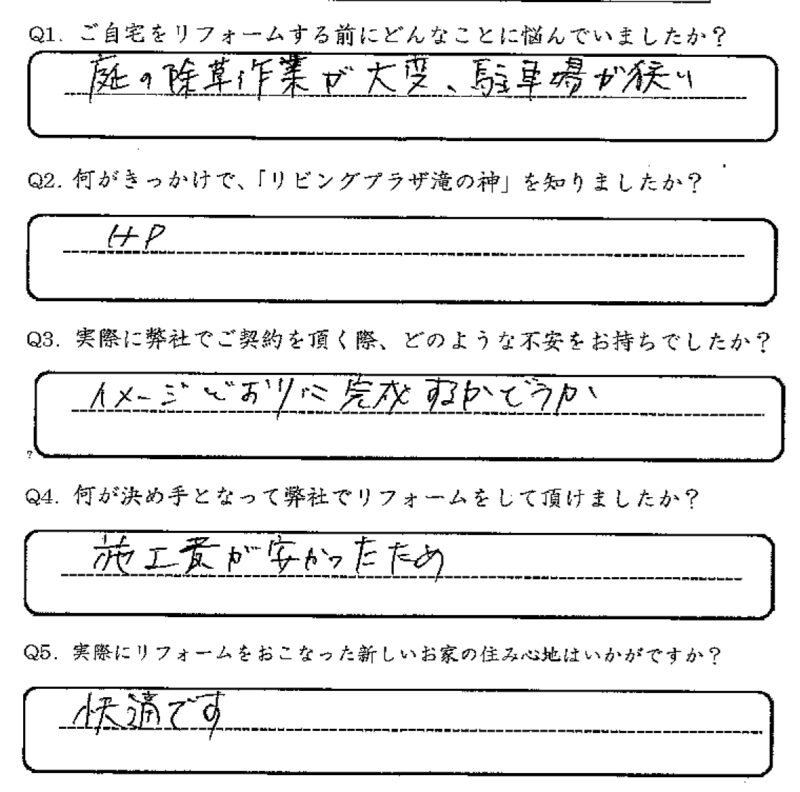 Q1. ご自宅をリフォームする前にどんなことに悩んでいましたか？
庭の除草作業が大変、駐車場が狭い
Q2. 何がきっかけで、「リビングプラザ滝の神」を知りましたか？
HP
Q3. 実際に弊社でご契約を頂く際、どのような不安をお持ちでしたか？
イメージどおりに完成するかどうか
?
Q4. 何が決め手となって弊社でリフォームをして頂けましたか？
施工費が安かったため
Q5. 実際にリフォームをおこなった新しいお家の住み心地はいかがですか？
快適です